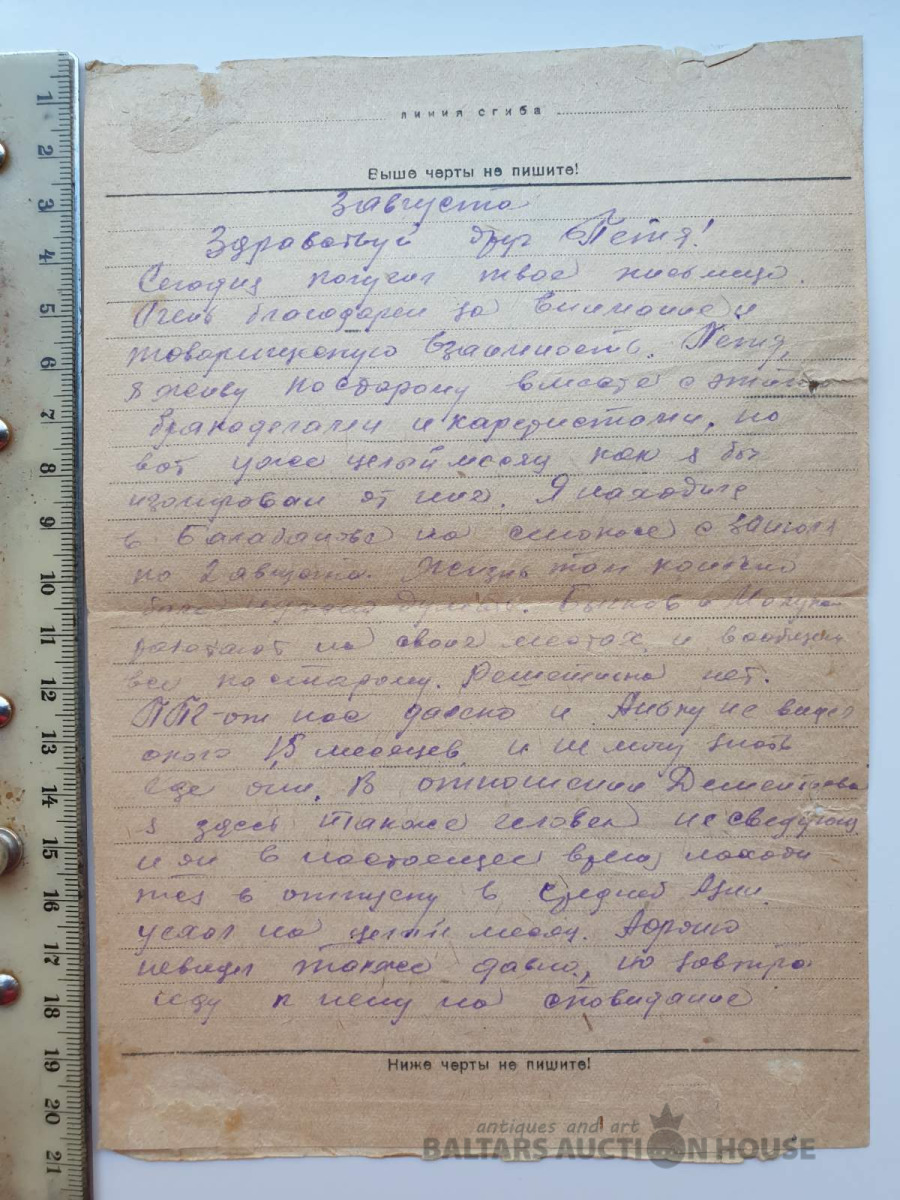 линия сгиба
Выше черты не пишите!
3 августа
Здравствуй друг Петя!
Сегодня получил твое письмецо.
Очень благодарен за внимание и
товарищескую взаимность. Петя,
я живу постарому вместе с этими
бракоделами и карьеристами, но
вот уже целый месяц как я был
изолирован от них. Я находился
в на сенокосе с
по 2 августа. Жизнь там конечно
в
работают на своих местах и вообщем
все постарому. Решетина нет.
от нас далеко и не видел
около 1,5 месяцев и не могу знать
где они. В отношении Дементьева
я здесь также человек не сведущий
и он в настоящее время находи
тся в отпуску в Средней Азии.
уехал на целый месяц.
невидел также давно, но завтра
еду к нему на
Ниже черты не пишите!
antiques and art
BALTARS AUCTION HOUSE
1
2
3
4
5
6
7
8
9
10
11
12
13
14
15
16
17
18
19
20
21